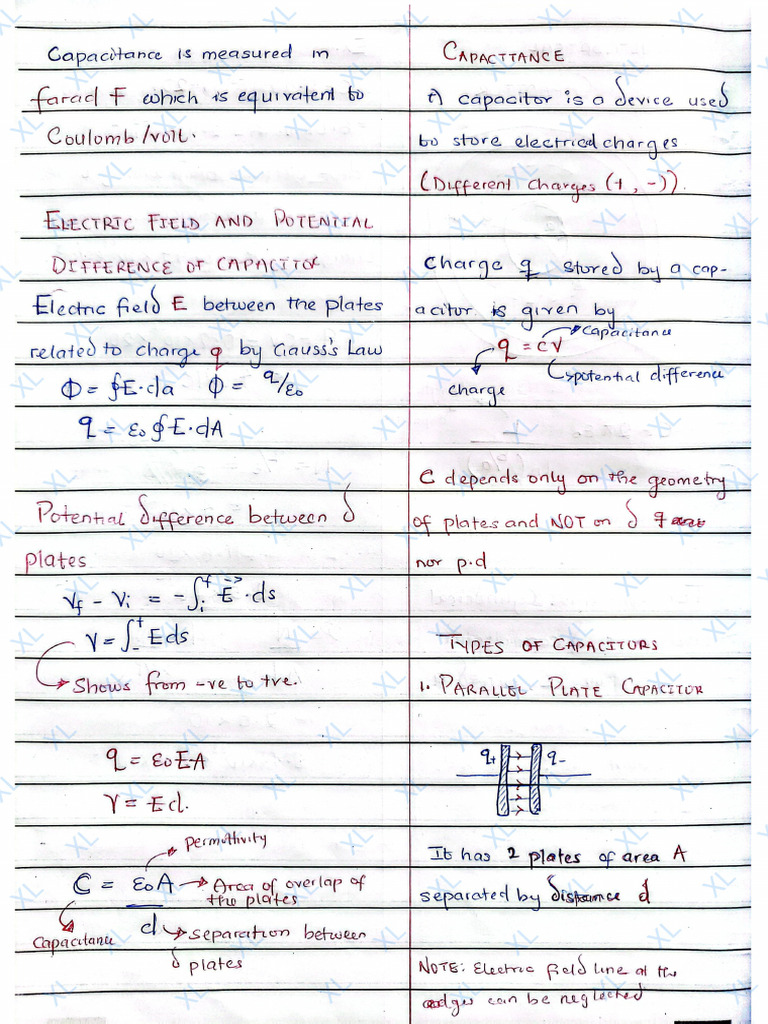 Capacitance is measured in
farad F which is equivalent to
Coulomb/volt.
ELECTRIC FIELD AND POTENTIAL
DIFFERENCE OF CAPACITOR
Electric field E between the plates
related to charge q by Gauss's Law
Φ = ∮E·da Φ = q/ε₀
q = ε₀∮E·dA
Potential difference between δ
plates
Vf - Vi = -∫ᵢᶠ E⃗·ds
V = ∫₋⁺ Eds
Shows from -ve to +ve.
q = ε₀EA
V = Ed.
Permittivity
C = ε₀A → Area of overlap of
the plates
Capacitance
d → separation between
δ plates
CAPACITANCE
A capacitor is a device used
to store electrical charges
(Different charges (+, -)).
Charge q stored by a cap-
acitor is given by
capacitance
q = cv
charge
potential difference
C depends only on the geometry
of plates and NOT on δ q
nor p.d
TYPES OF CAPACITORS
1. PARALLEL PLATE CAPACITOR
q+ q-
It has 2 plates of area A
separated by distance d
NOTE: Electric field line at the
edges can be neglected
XL